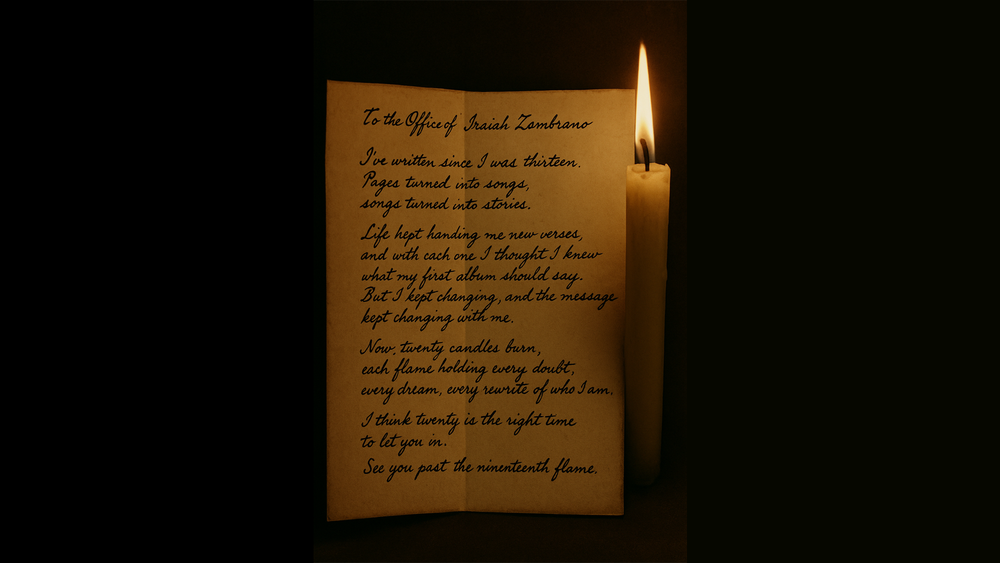 To the Office of Isaiah Zambrano
I've written since I was thirteen.
Pages turned into songs,
songs turned into stories.
Life kept handing me new verses,
and with each one I thought I knew
what my first album should say.
But I kept changing, and the message
kept changing with me.
Now, twenty candles burn,
each flame holding every doubt,
every dream, every rewrite of who I am.
I think twenty is the right time
to let you in.
See you past the ninenteenth flame.